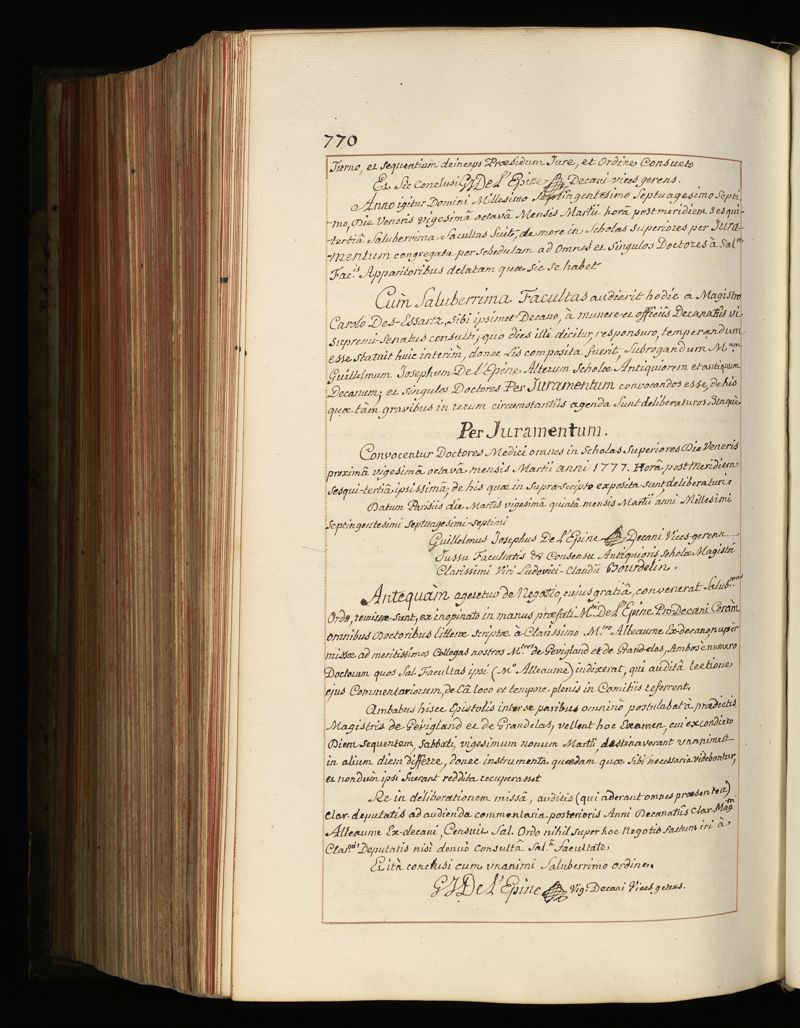 770
Turno, et sequentium deinceps Præsidum Jure, et Ordine Consueto
Et Sic Conclusi GJDe L'Epine Decani vices gerens.
Anno igitur Domini Millesimo Septingentesimo Septuagesimo Septi-
mo, Die Veneris vigesimâ octavâ Mensis Martii horâ postmeridiem sesqui-
-tertiâ Saluberrima Facultas fuit, de more in Scholas superiores per Jura-
mentum congregata per schedulam ad Omnes et singulos Doctores à Sal.
Fac.is Apparitoribus delatam quæ sic se habet
Cùm Saluberrima Facultas audierit hodie a Magistro
Carolo Des-Essartz, sibi ipsimet Decano, à munere et officiis Decanatûs vi
supremi-Senatus consulti, quo dies illi dicitur, responsuro, temperandum
esse statuit huic interim, donec Lis composita fuerit, Subrogandum M.um
Guillelmum Josephum De L'Epine Alterum Scholæ Antiquiorem et antiquum
Decanum; et singulos Doctores Per Juramentum convocandos esse, de his
quæ tàm gravibus in rerum circumstantiis agenda Sunt deliberaturos. Itaquè
Per Juramentum.
Convocentur Doctores Medici omnes in Scholas Superiores Die Veneris
proximâ vigesimâ octavâ mensis Martii anni 1777. Horâ postmeridiem
sesqui-tertiâ ipsissimâ, de his quæ in Supra-scripto exposita sunt deliberaturi.
Datum Parisiis die Martis vigesimâ quintâ mensis Martii anni Millesimi
septingentesimi septuagesimi-septimi
Guillelmus Josephus De L'Epine Decani Vices gerens
Jussu Facultatis & Consensu Antiquioris scholæ Magistri
Clarissimi Viri Ludovici-Claudii Bourdelin.
Antequàm ageretur de Negotio, cujus gratiâ, convenerat Salub.
Ordo, remissæ sunt, ex inopinato in manus præfati M.ri De L'Epine Pro-Decani Coràm
omnibus Doctoribus litteræ scriptæ à Clarissimo M.tro Alleaume Ex-decano nuper
missæ ad meritissimos Collegas nostros M.tros de Gevigland et de Grandclas, Ambos è numero
Doctorum quos Sal. Facultas ipsi (M.o Alleaume) indixerat, qui auditâ lectione
ejus Commentariorum, de câ loco et tempore, plenis in Comitiis referrent.
Ambabus hisce Epistolis inter se paribus omnino postulabat à prædictis
Magistris de Gevigland et de Grandclas, vellent hoc Examen, cui ex condicto
Diem sequentem, sabbati, vigesimum nonum Martii, destinaverant unanimes
in alium diem differre, donec instrumenta quædam quæ sibi necessaria videbantur,
et nonduìn ipsi fuerant reddita recuperasset
Re in deliberationem missâ, auditis (qui aderant omnes præsentes)
Clar. deputatis ad audienda commentaria posterioris Anni Decanatûs Clar. Mag.tri
Alleaume Ex-decani, Censuit Sal. Ordo nihil super hoc negotio factum iri à
Clar. Deputatis nisi denuò consultâ Sal.â Facultate.
Et ità conclusi cum unanimi Saluberrimo ordine.
GJDe L'Epine Decani Vices gerens.